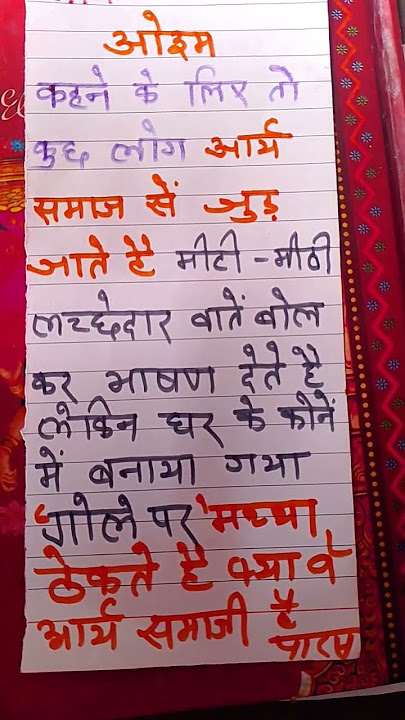 ओइम
कहने के लिए तो
कुछ लोग आर्य
समाज सें जुड़
जाते है मीटी -मीठी
लच्छेदार बातें बोल
कर भाषण देते है
लेकिन घर के कौनें
में बनाया गया
'गोले पर 'मथ्था
ठेकते है क्या वे
आर्य समाजी है
पारस